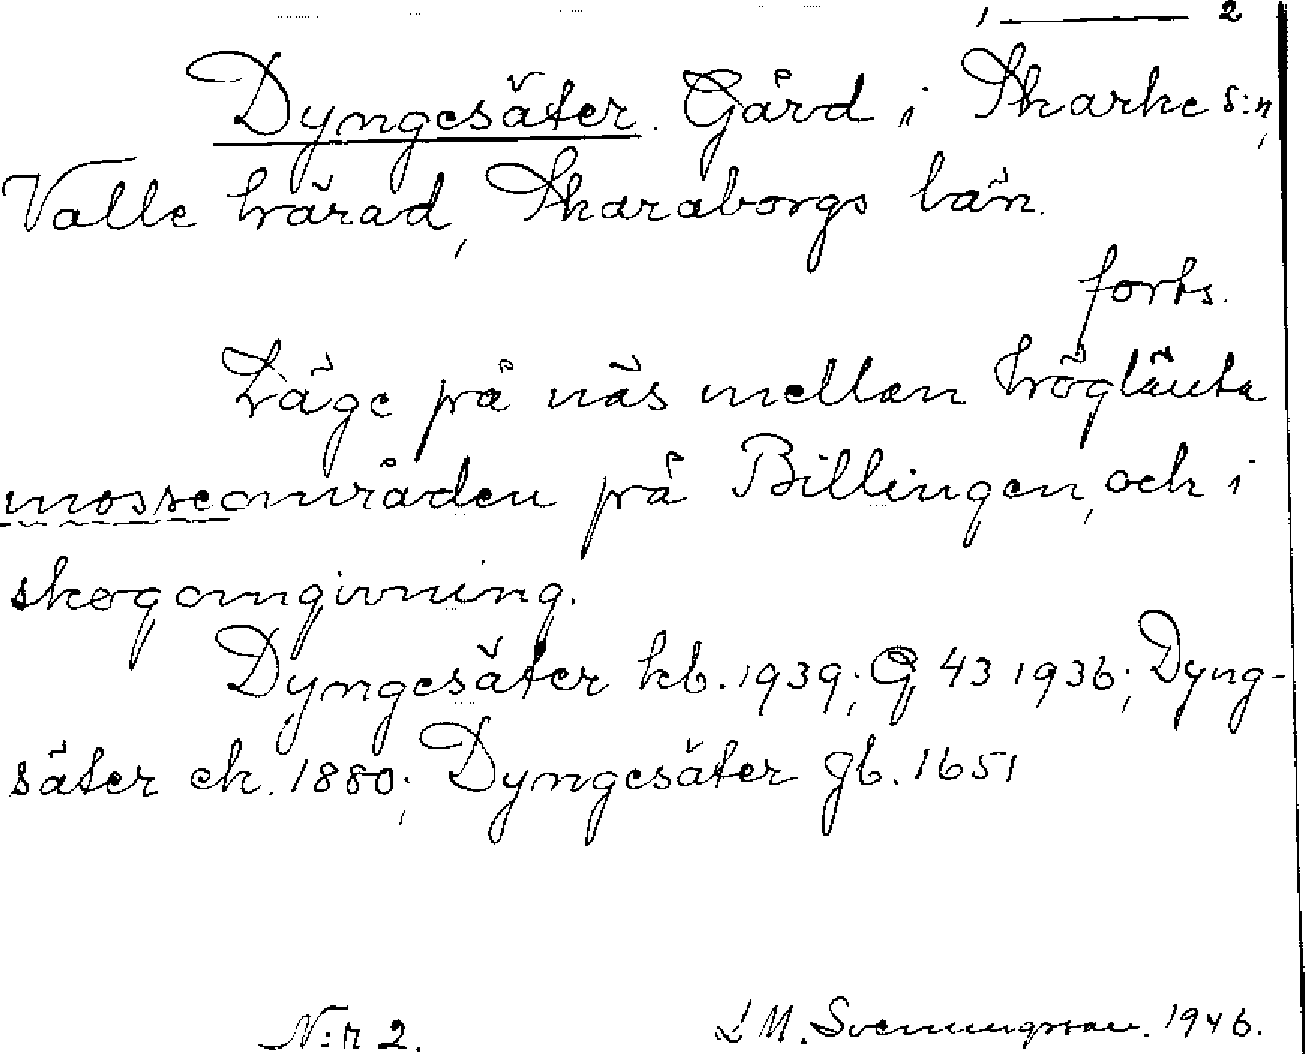 1 — 2
Dyngesäter. Gård i Skarke s:n,
Valle härad, Skaraborgs län.
forts.
Läge på näs mellan höglänta
mosseområden på Billingen, och i
skogomgivning.
Dyngesäter kb. 1939; G 43 1936; Dyng-
säter ek. 1880; Dyngesäter gb. 1651
N:r 2. L M. Svenungsson. 1946.